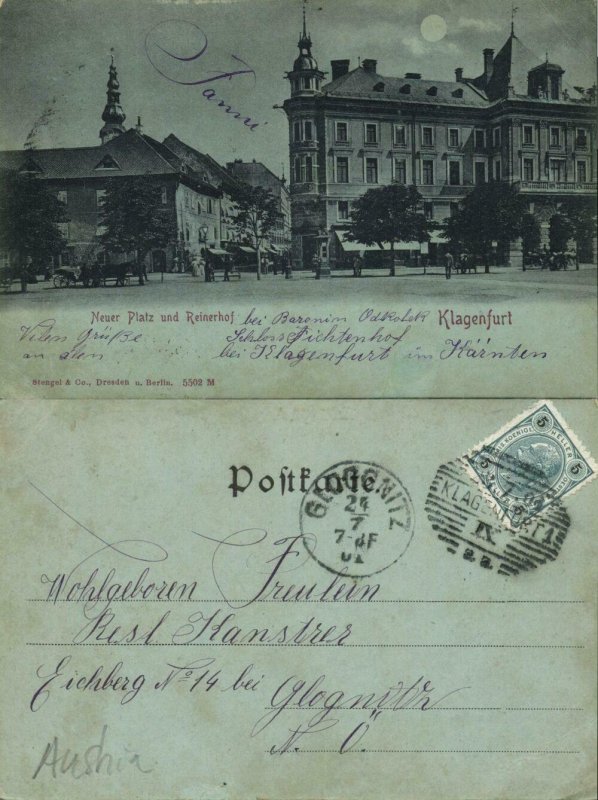 Fanni
Neuer Platz und Reinerhof bei Baronin Odkolek Klagenfurt
Vielen Grüße Schloss Fichtenhof
an den bei Klagenfurt im Kärnten
Stengel & Co., Dresden u. Berlin. 5502 M
Postkarte.
5 HELLER 5
GLOGGNITZ
24
7
7-8F
01
KLAGENFURT 1
IX
a.a.
Wohlgeboren Freulein
Resl Kanstrer
Eichberg No 14 bei Glognitz
N. Ö.
Austria